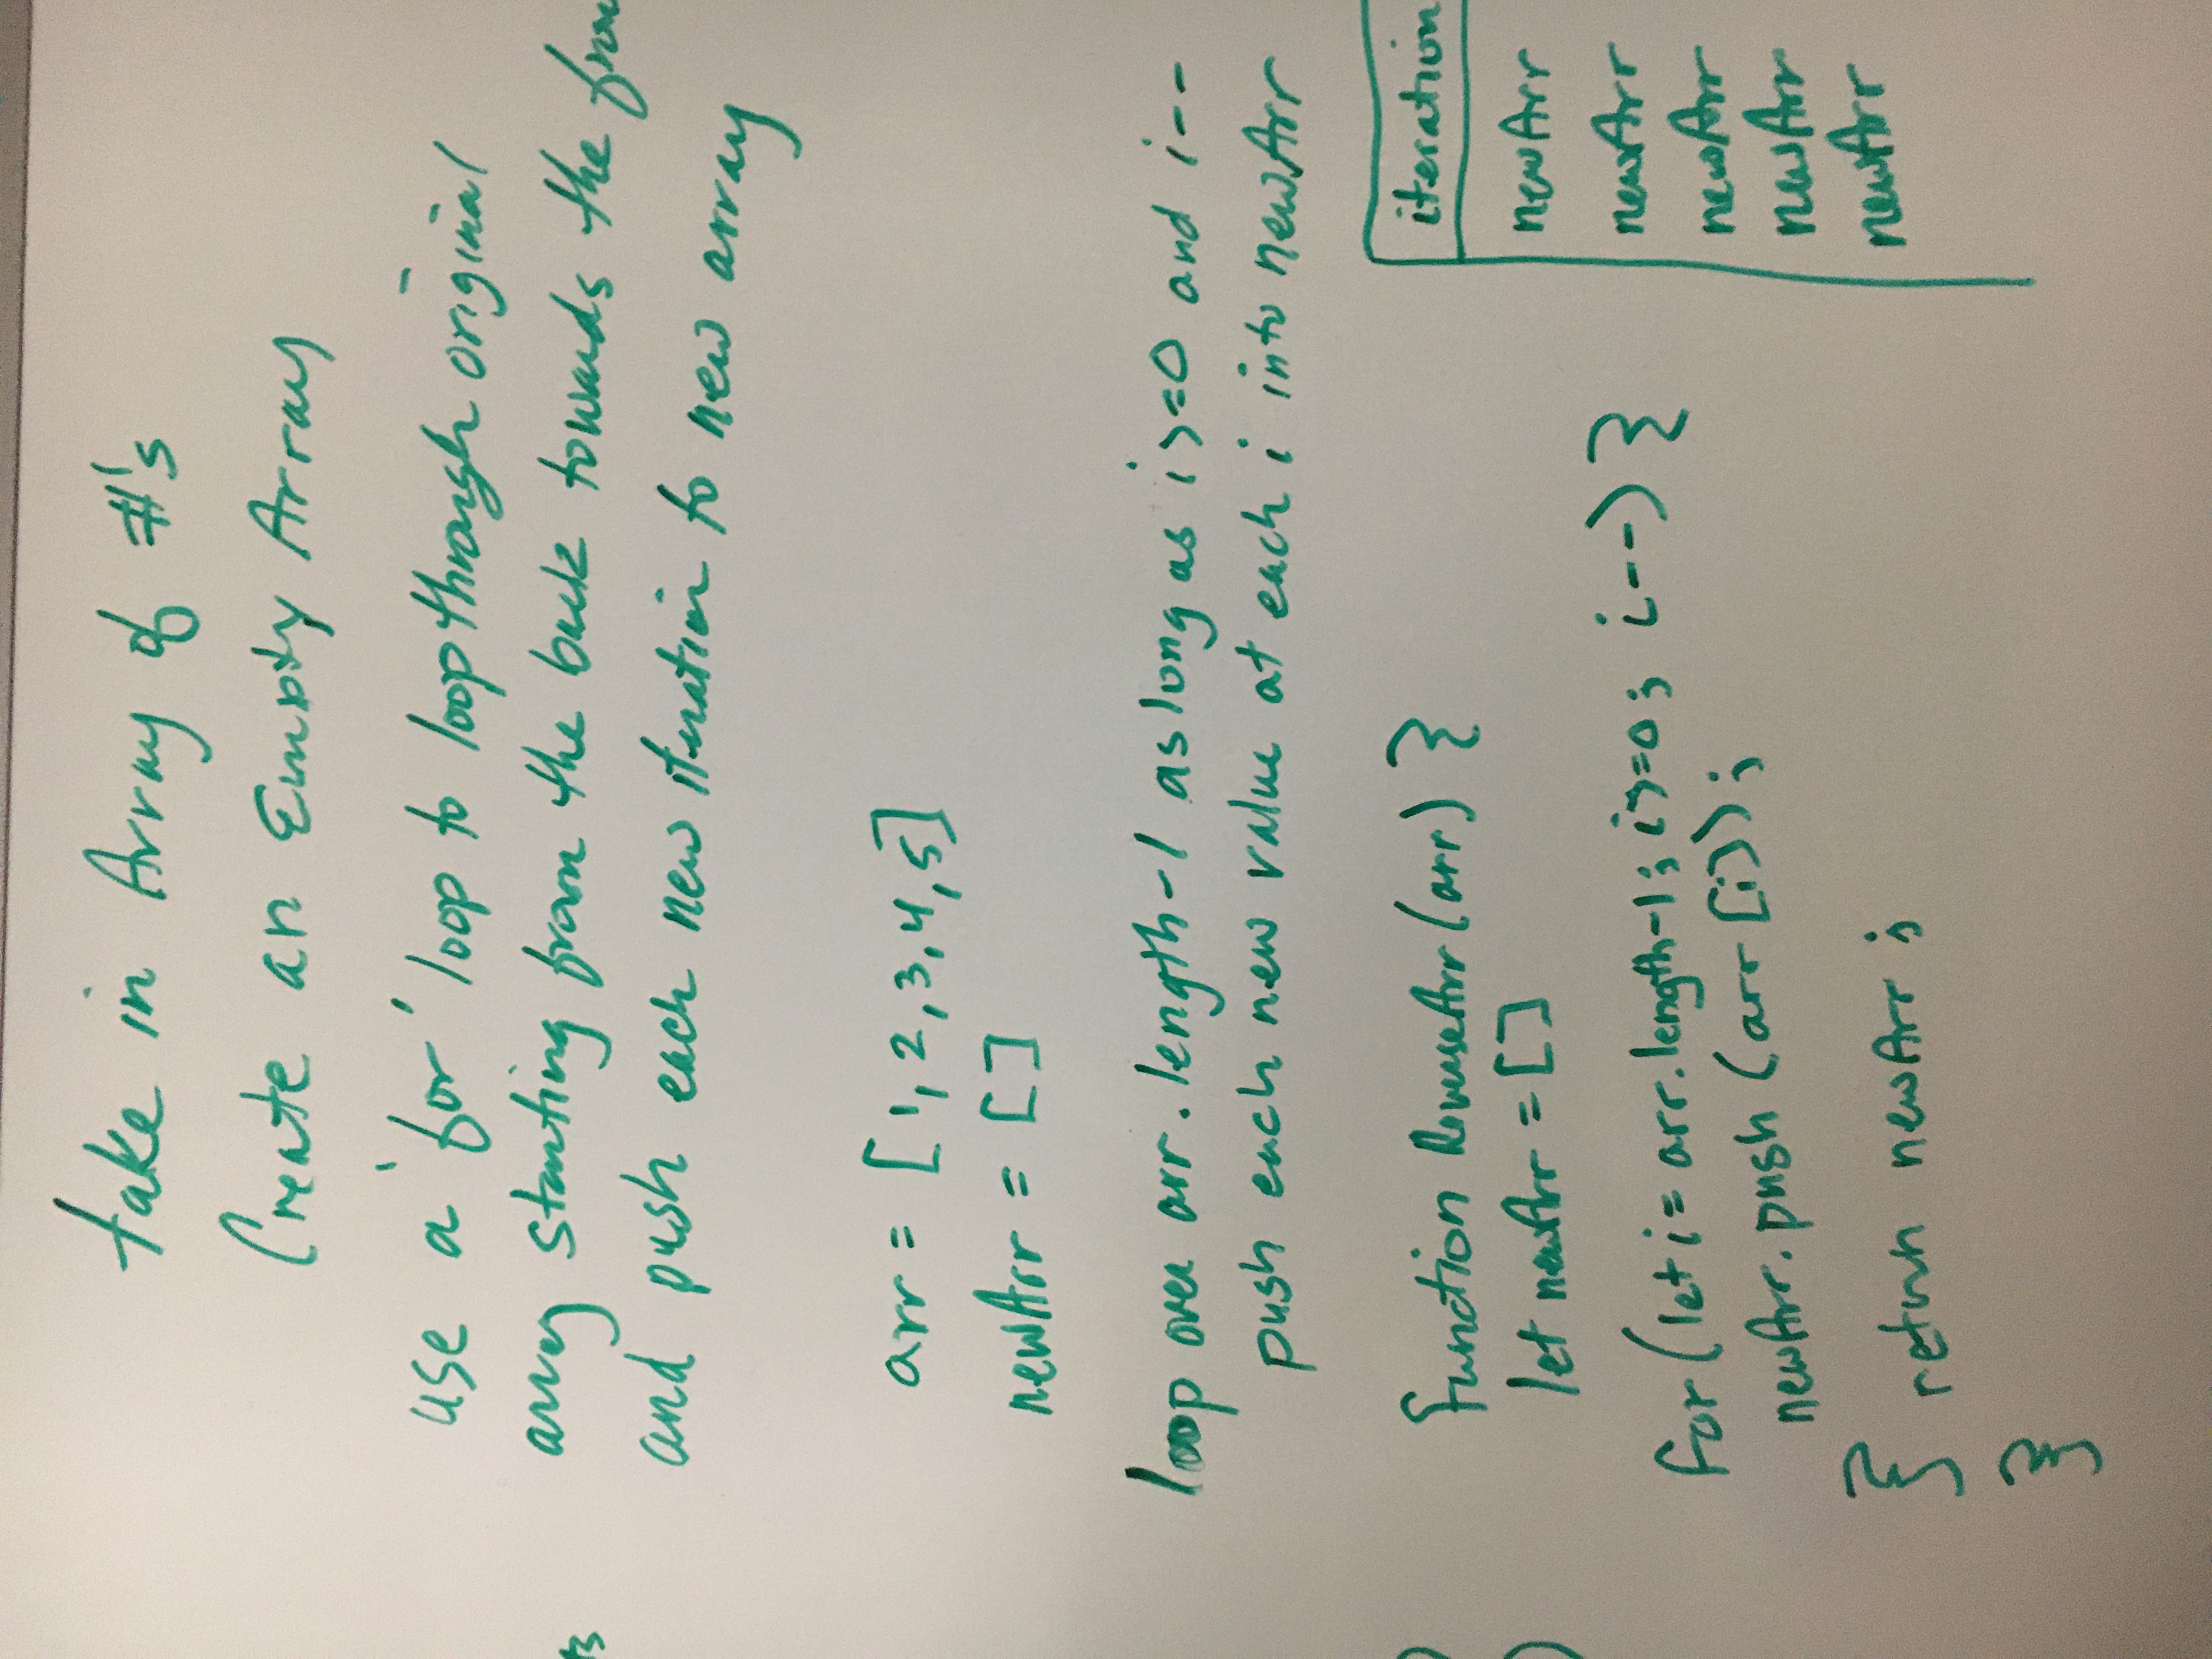 take in Array of #'s
Create an Empty Array
use a 'for' loop to loop through original
array starting from the back towards the fron
and push each new iteration to new array
arr = [1, 2, 3, 4, 5]
newArr = []
loop over arr.length-1 as long as i>=0 and i--
push each new value at each i into newArr
function ReverseArr(arr) }
let newArr = []
for(let i = arr.length-1; i>=0; i--) }
newArr.push(arr[i]);
} return newArr;
}
iteration
newArr
newArr
newArr
newArr
newArr